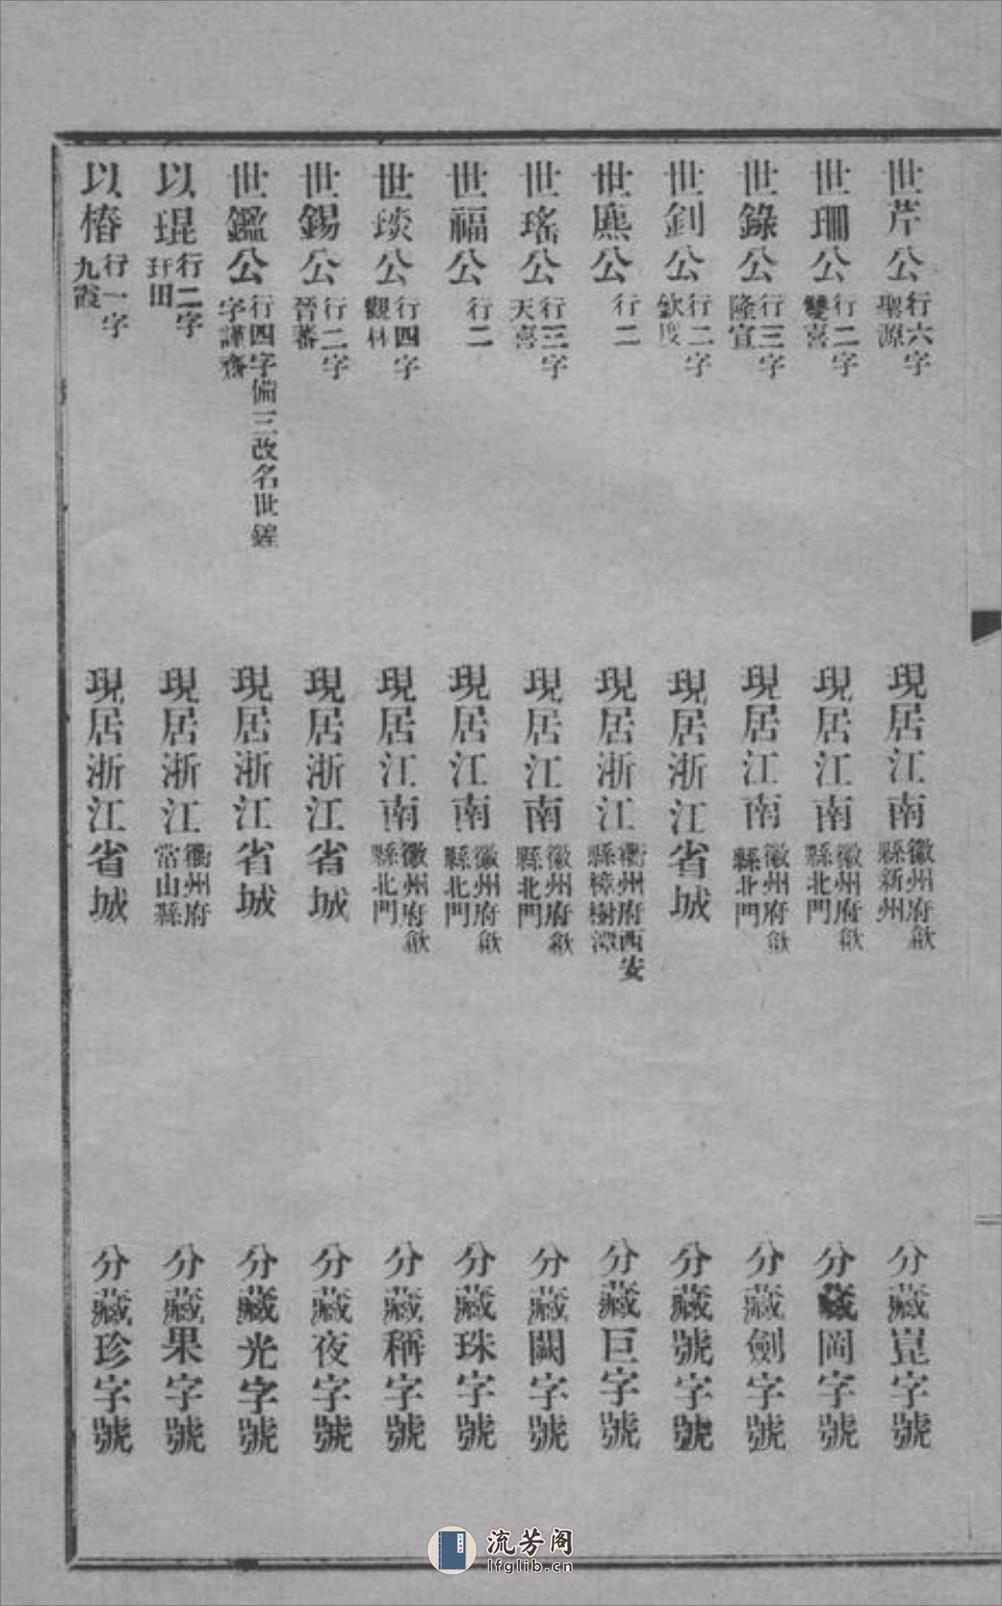 世芹公行六字聖源 現居江南徽州府歙縣新州 分藏崑字號
世珊公行二字雙喜 現居江南徽州府歙縣北門 分藏岡字號
世錄公行三字隆宣 現居江南徽州府歙縣北門 分藏劍字號
世釗公行二字欽度 現居浙江省城 分藏號字號
世廌公行二 現居浙江衢州府西安縣樟樹潭 分藏巨字號
世瑤公行三字天喜 現居江南徽州府歙縣北門 分藏闕字號
世福公行二 現居江南徽州府歙縣北門 分藏珠字號
世琰公行四字觀林 現居江南徽州府歙縣北門 分藏稱字號
世錫公行二字晉蕃 現居浙江省城 分藏夜字號
世鑑公行四字備三改名世鎈字謹齋 現居浙江省城 分藏光字號
以琨行二字玗田 現居浙江衢州府常山縣 分藏果字號
以椿行一字九霞 現居浙江省城 分藏珍字號
流芳阁
lfglib.cn